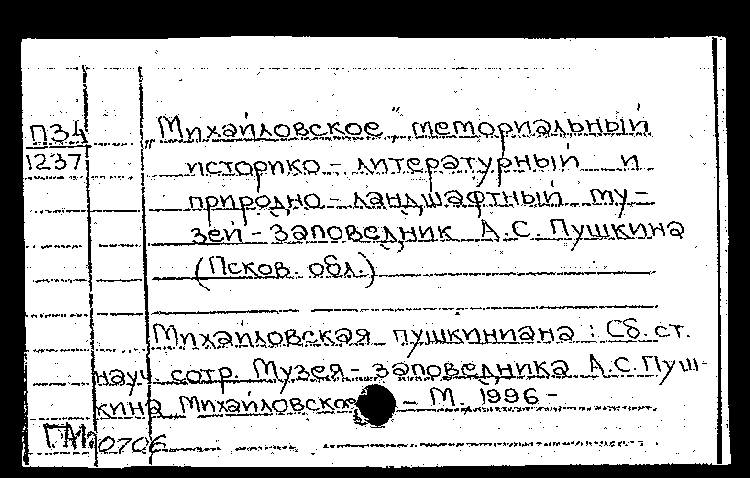 П34
1237
„Михайловское“, мемориальный
историко-литературный и
природно-ландшафтный му-
зей-заповедник А.С. Пушкина
(Псков. обл.)
Михайловская пушкиниана: Сб. ст.
науч. сотр. Музея-заповедника А.С. Пуш-
кина Михайловское – М. 1996 –
0706